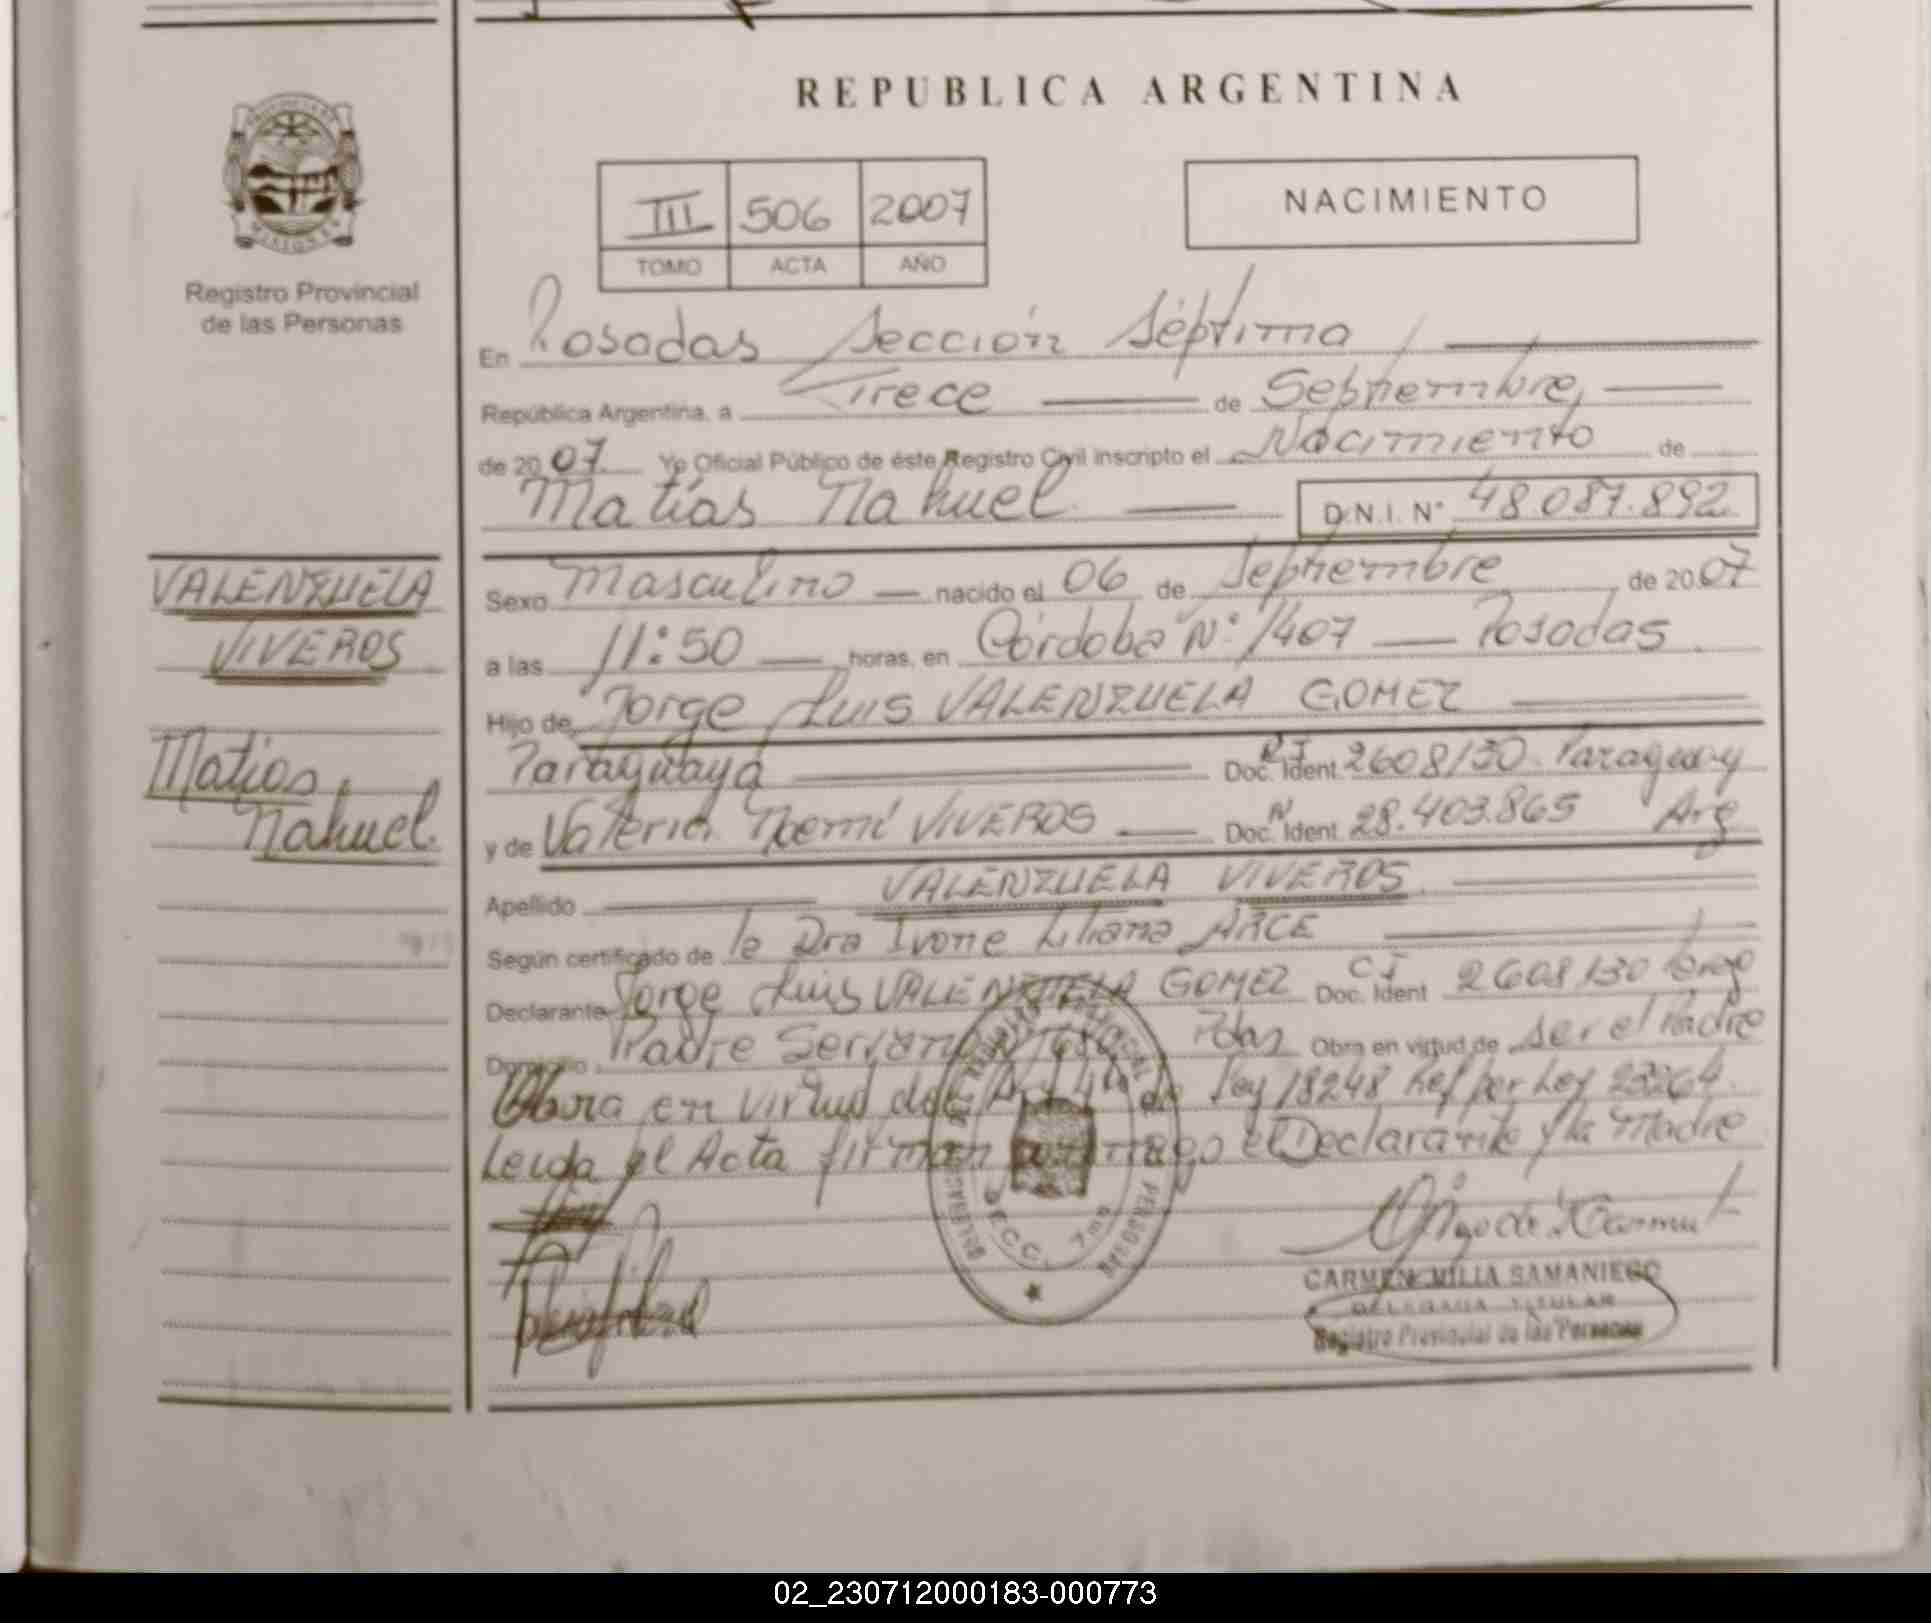 REPUBLICA ARGENTINA
III 506 2007
TOMO ACTA AÑO
NACIMIENTO
Registro Provincial
de las Personas
En Posadas Sección Séptima
República Argentina, a Trece de Septiembre,
de 2007. Yo Oficial Público de éste Registro Civil inscripto el Nacimiento de
Matías Nahuel D.N.I. N° 48.087.892
VALENZUELA
VIVEROS
Matias
Nahuel
Sexo Masculino nacido el 06 de Septiembre de 2007
a las 11:50 horas, en Córdoba N° 1407 Posadas
Hijo de Jorge Luis VALENZUELA GOMEZ
Paraguaya Doc. Ident 2608130 Paraguay
y de Valeria Noemí VIVEROS Doc. Ident 28.403.865 Arg
Apellido VALENZUELA VIVEROS
Según certificado de la Dra Ivone Liliana ARCE
Declarante Jorge Luis VALENZUELA GOMEZ Doc. Ident CI 2608130
Domicilio Padre Serrano Pdas Obra en virtud de ser el Padre
Obra en virtud del Art 4to de Ley 18248 Ref por Ley 23264.
Leida el Acta firman conmigo el Declarante y la Madre
SECC. 7ma
CARMEN MILIA SAMANIEGO
DELEGADA TITULAR
Registro Provincial de las Personas
02_230712000183-000773